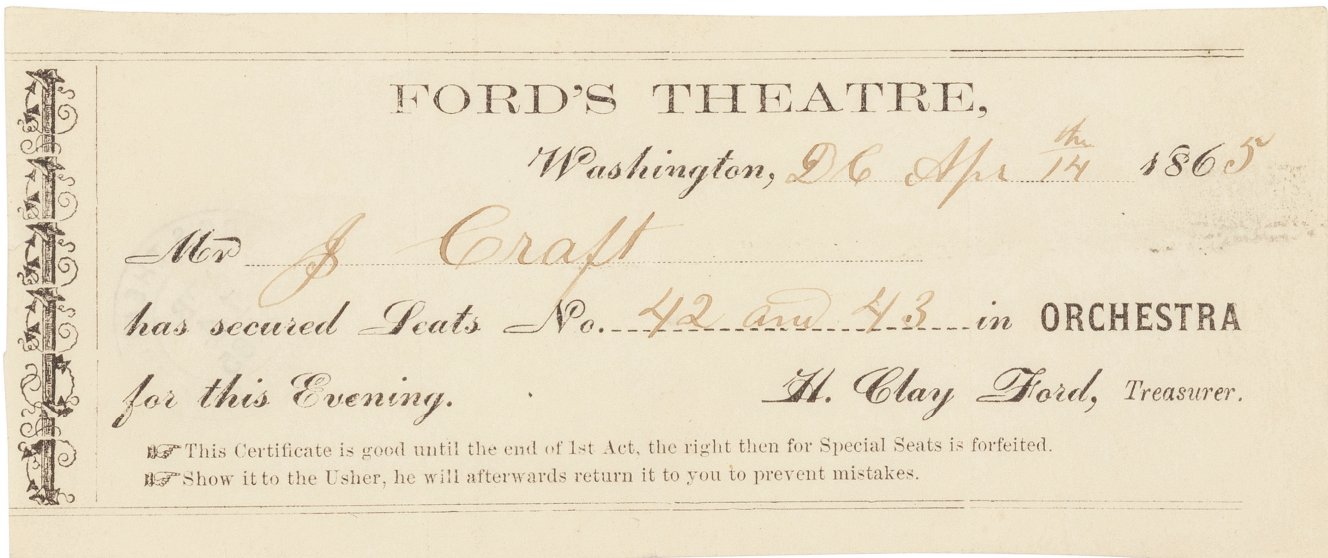 FORD'S THEATRE,
Washington, DC Apr 14th 1865
Mr J Craft
has secured Seats No. 42 and 43 in ORCHESTRA
for this Evening. H. Clay Ford, Treasurer.
☞ This Certificate is good until the end of 1st Act, the right then for Special Seats is forfeited.
☞ Show it to the Usher, he will afterwards return it to you to prevent mistakes.